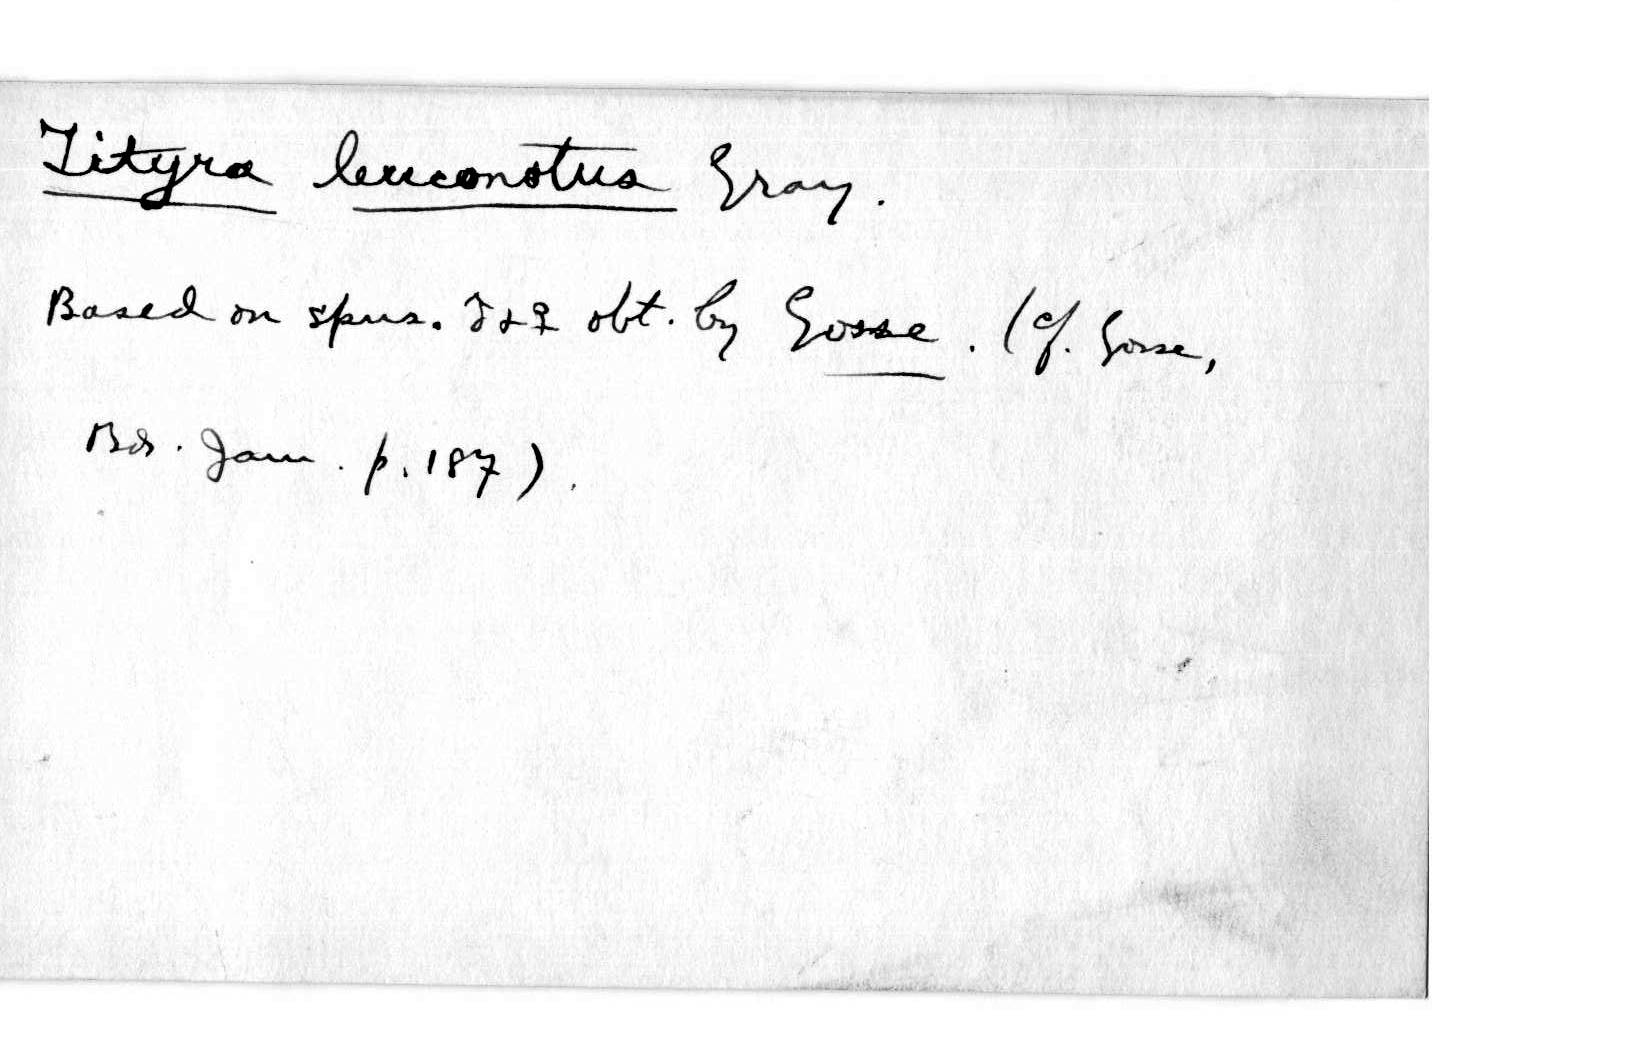 Tityra leuconotus Gray.
Based on spms. ♂ & ♀ obt. by Gosse. (Cf. Gosse,
Bds. Jam. p. 187).